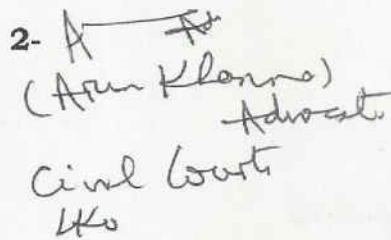 2-
(Arun Khanna)
Advocate
Civil Court
LKO